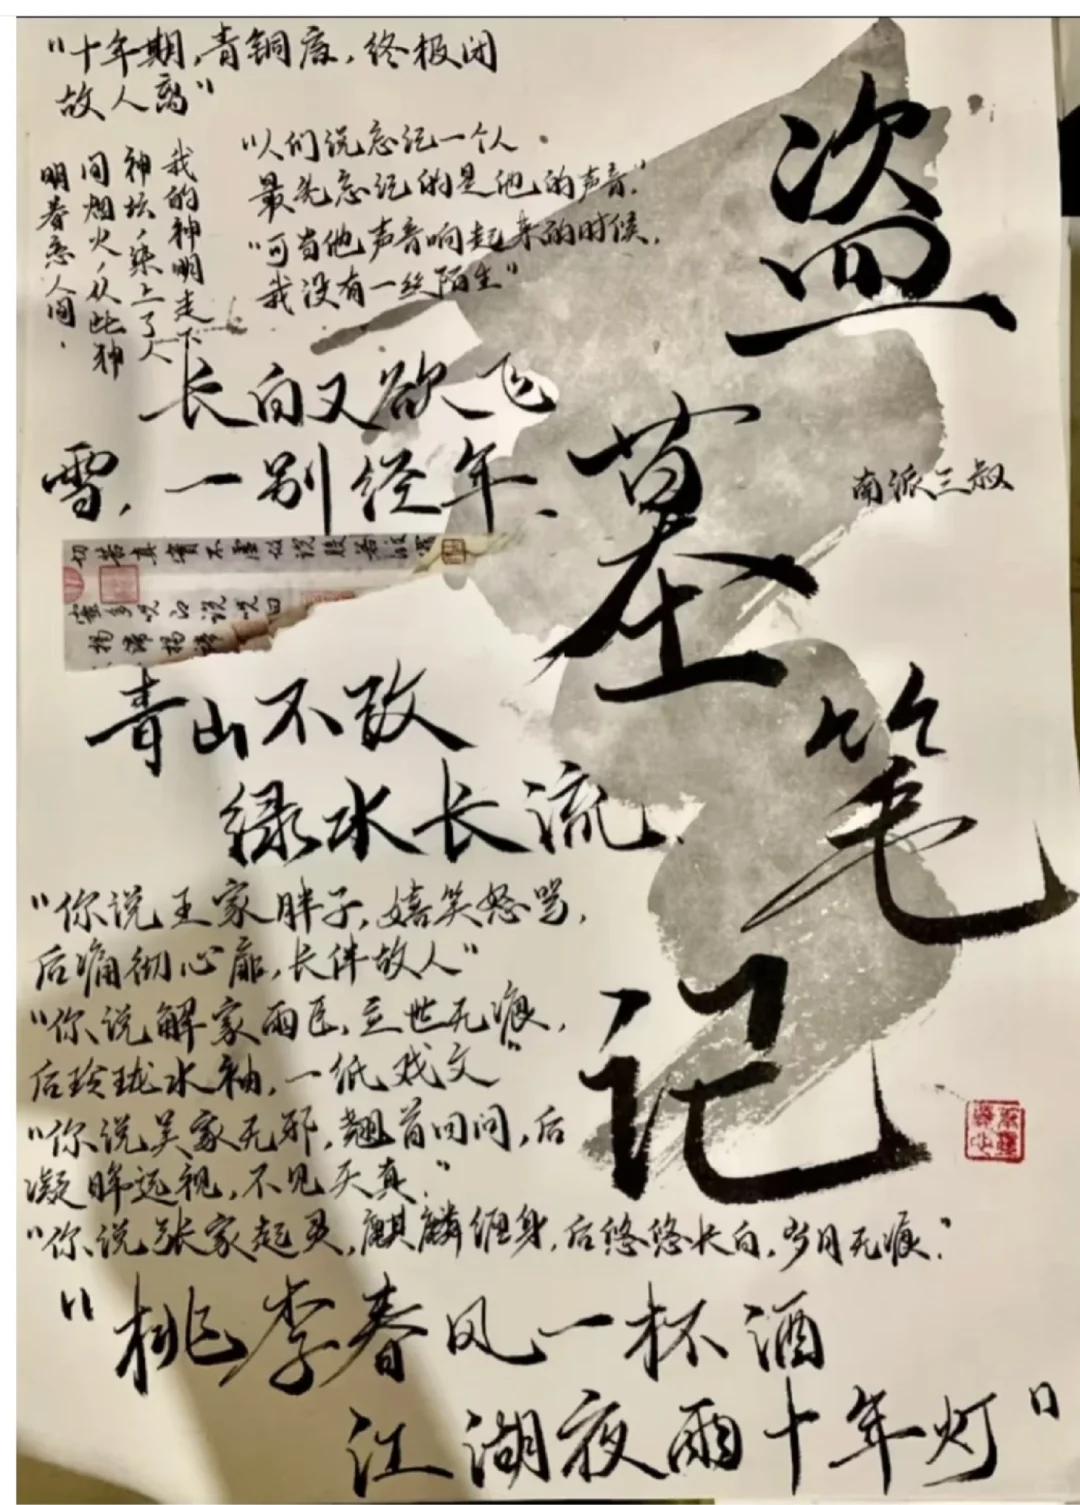 "十年期,青铜废,终极闭
故人离"
"人们说忘记一个人
最先忘记的是他的声音."
"可当他声音响起来的时候,
我没有一丝陌生"
我的神明走下
神坛染上了人
间烟火从此神
明眷恋人间.
长白又欲飞
雪,一别经年、
切苦真實不虛故說般若波
蜜多咒即說咒曰
揭諦揭諦
青山不改
绿水长流.
"你说王家胖子,嬉笑怒骂,
后痛彻心扉,长伴故人"
"你说解家雨臣,立世无痕,
后玲珑水袖,一纸戏文"
"你说吴家无邪,翘首回问,后
凝眸远视,不见天真."
"你说张家起灵,麒麟缠身,后悠悠长白,岁月无痕."
"桃李春风一杯酒
江湖夜雨十年灯"
盗墓笔记
南派三叔